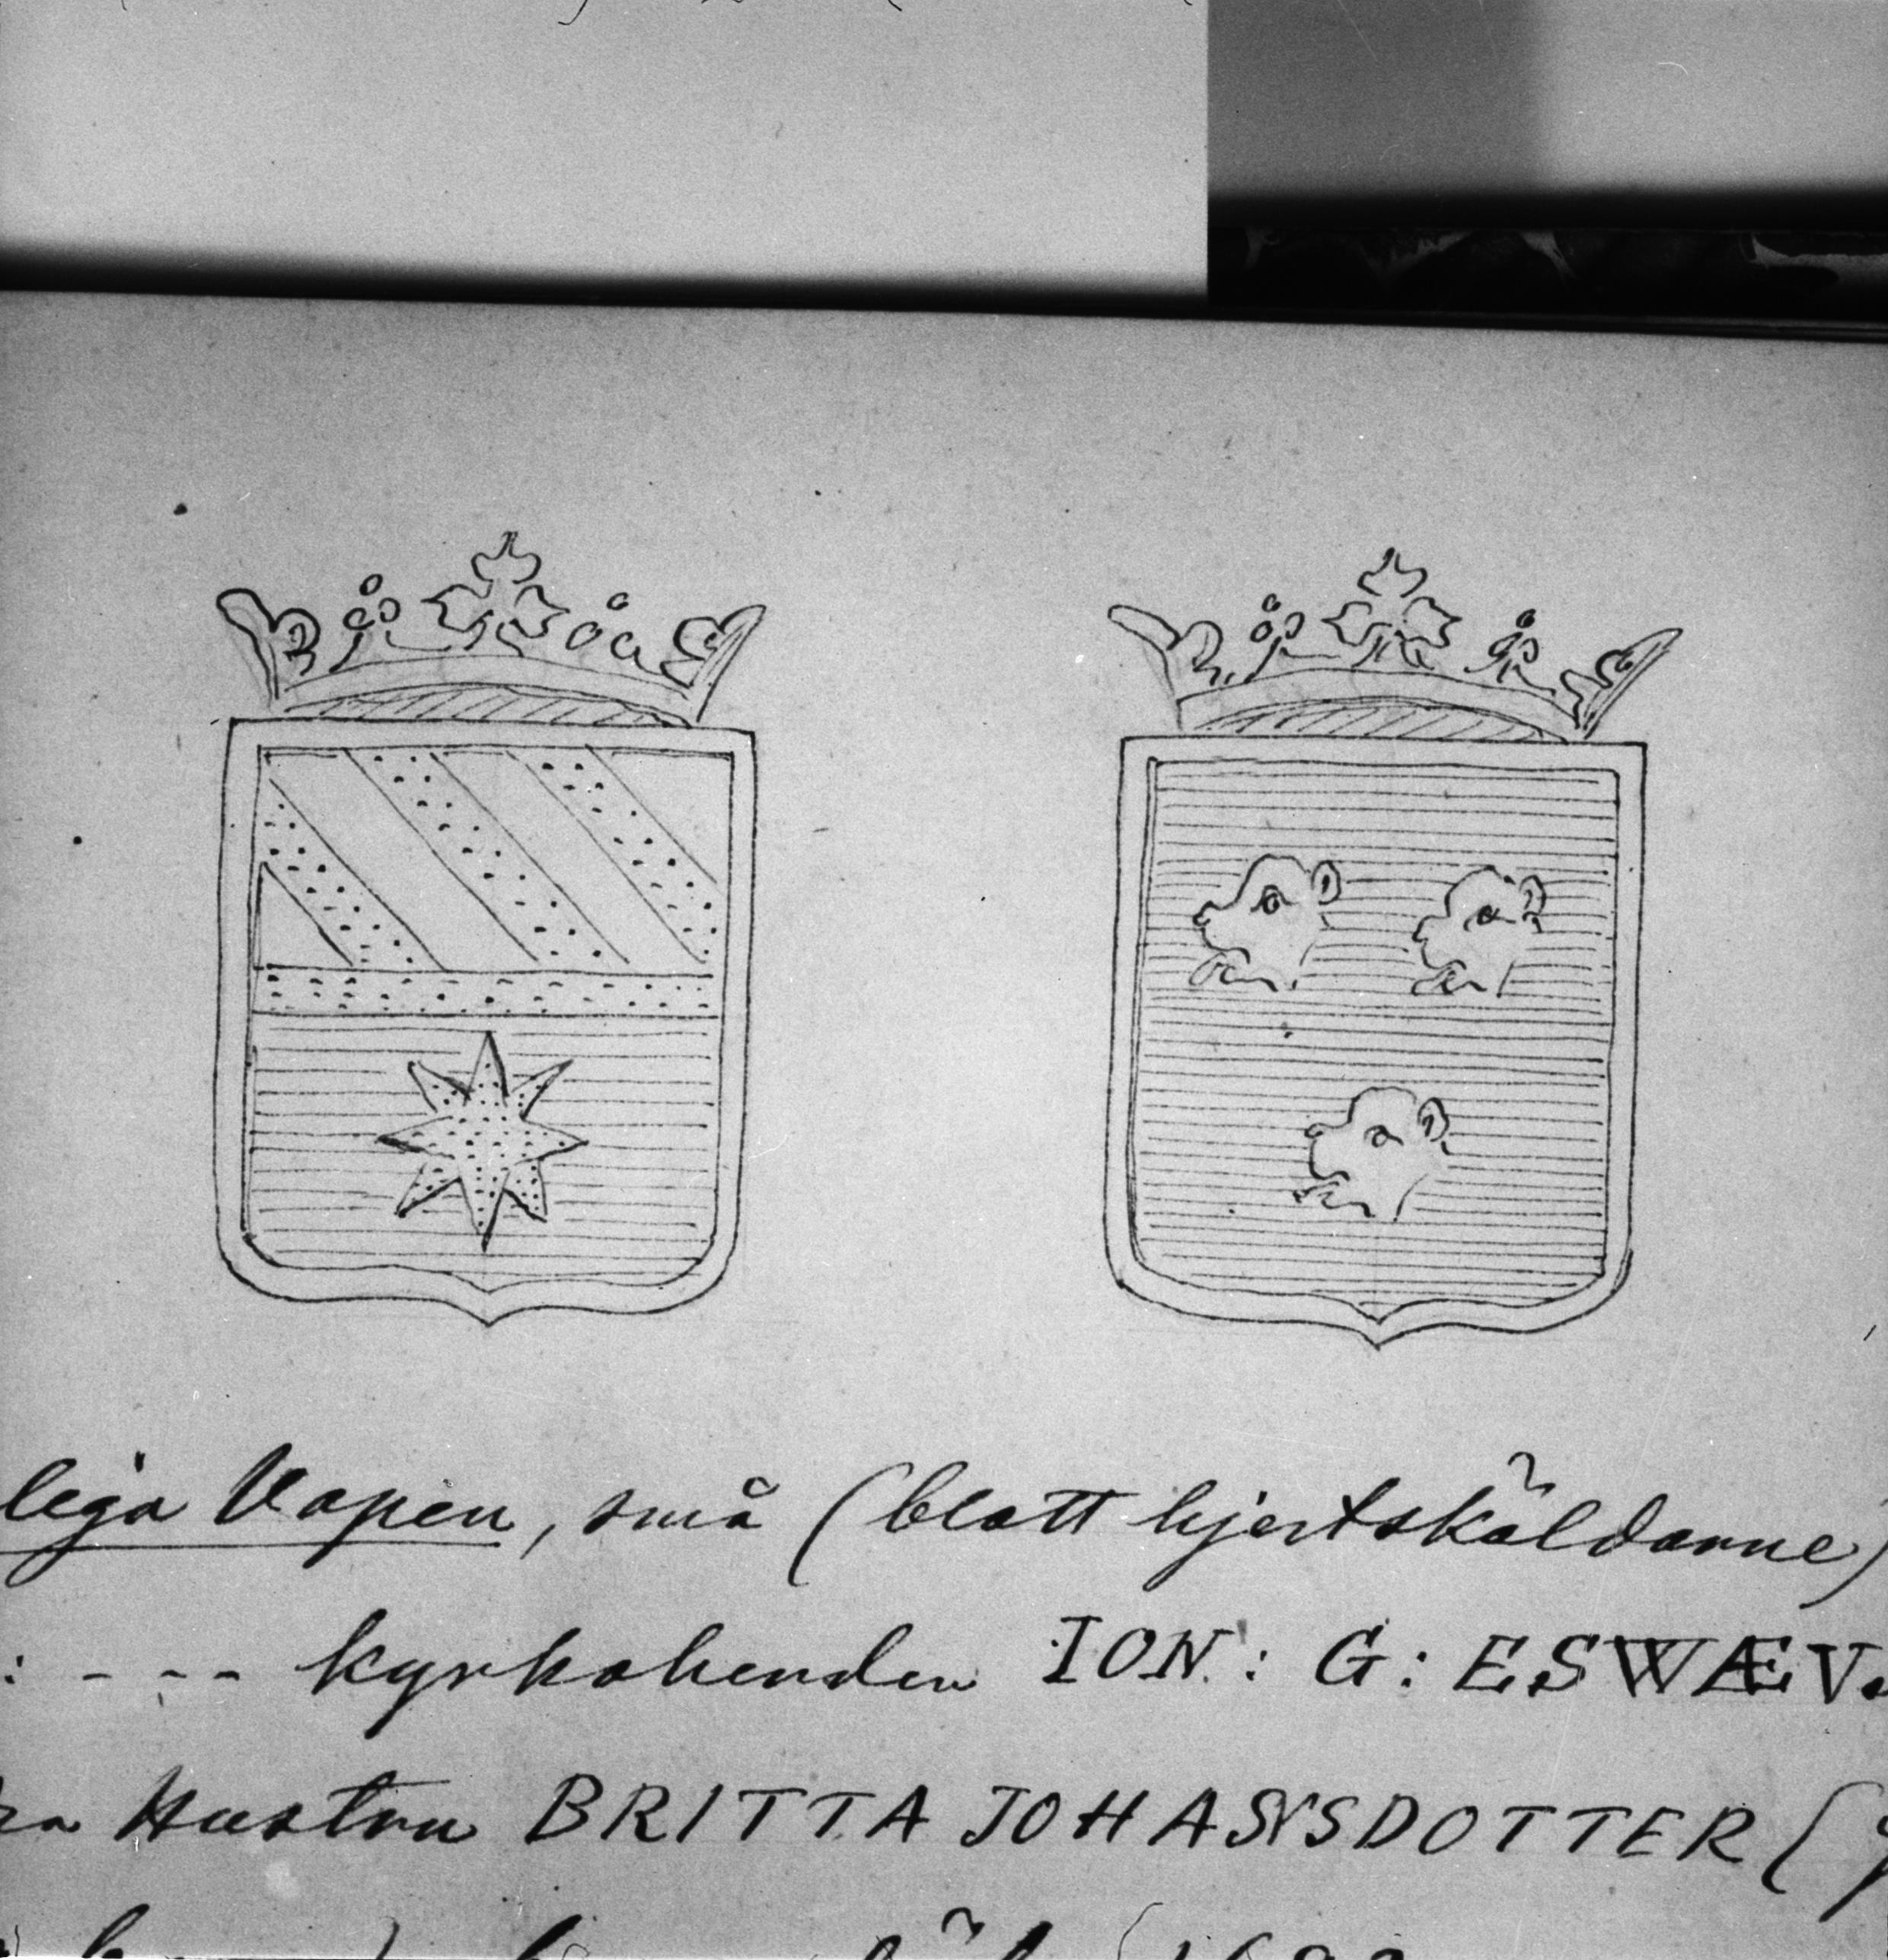 lega Vapen, små (blott hjertsköldarne)
: - - - kyrkoherden ION: G: ESWÆV
Hustru BRITTA JOHANSDOTTER (